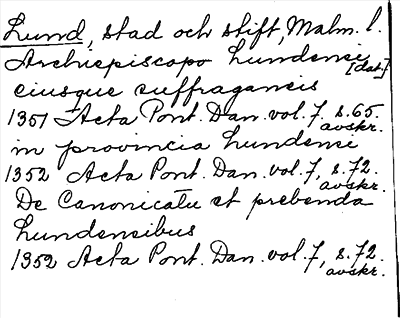 Lund, stad och stift, Malm. l.
Archiepiscopo Lundensi [dat.]
eiusque suffraganeis
1351 Acta Pont. Dan. vol. 7. s. 65.
avskr.
in provincia Lundensi
1352 Acta Pont. Dan. vol. 7, s. 72.
avskr.
De Canonicatu et prebenda
Lundensibus
1352 Acta Pont. Dan. vol. 7, s. 72.
avskr.